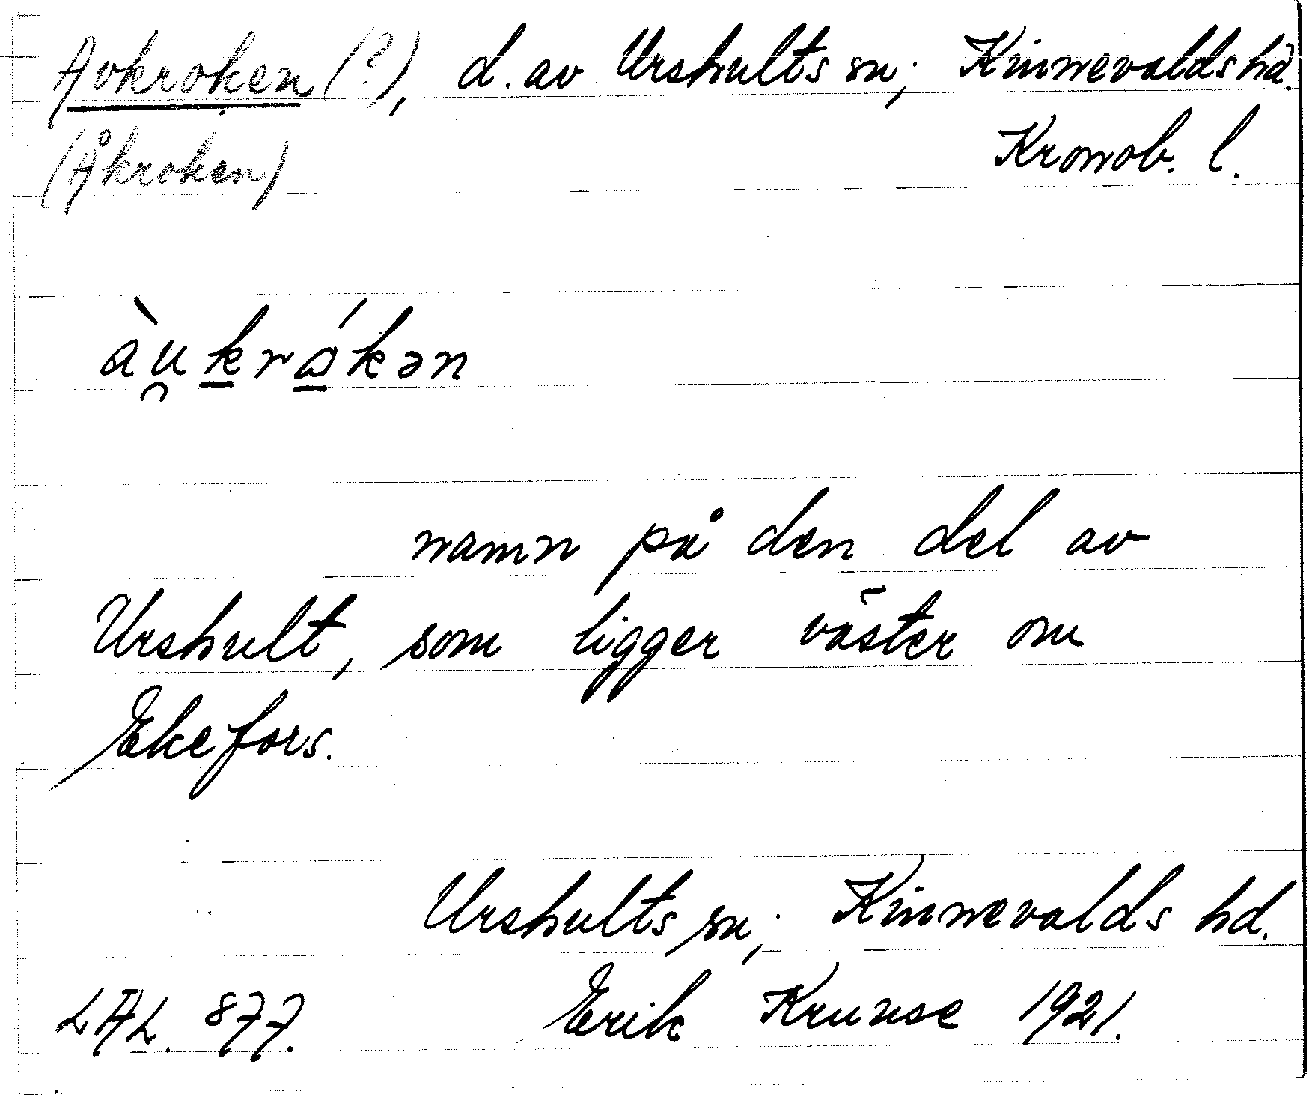 Avkroken (?), d. av Urshults sn; Kinnevalds hd.
(Åkroken) Kronob. l.
àu̯krǻkən
namn på den del av
Urshult, som ligger väster om
Ekefors.
Urshults sn; Kinnevalds hd.
LAL. 877. Erik Kruuse 1921.